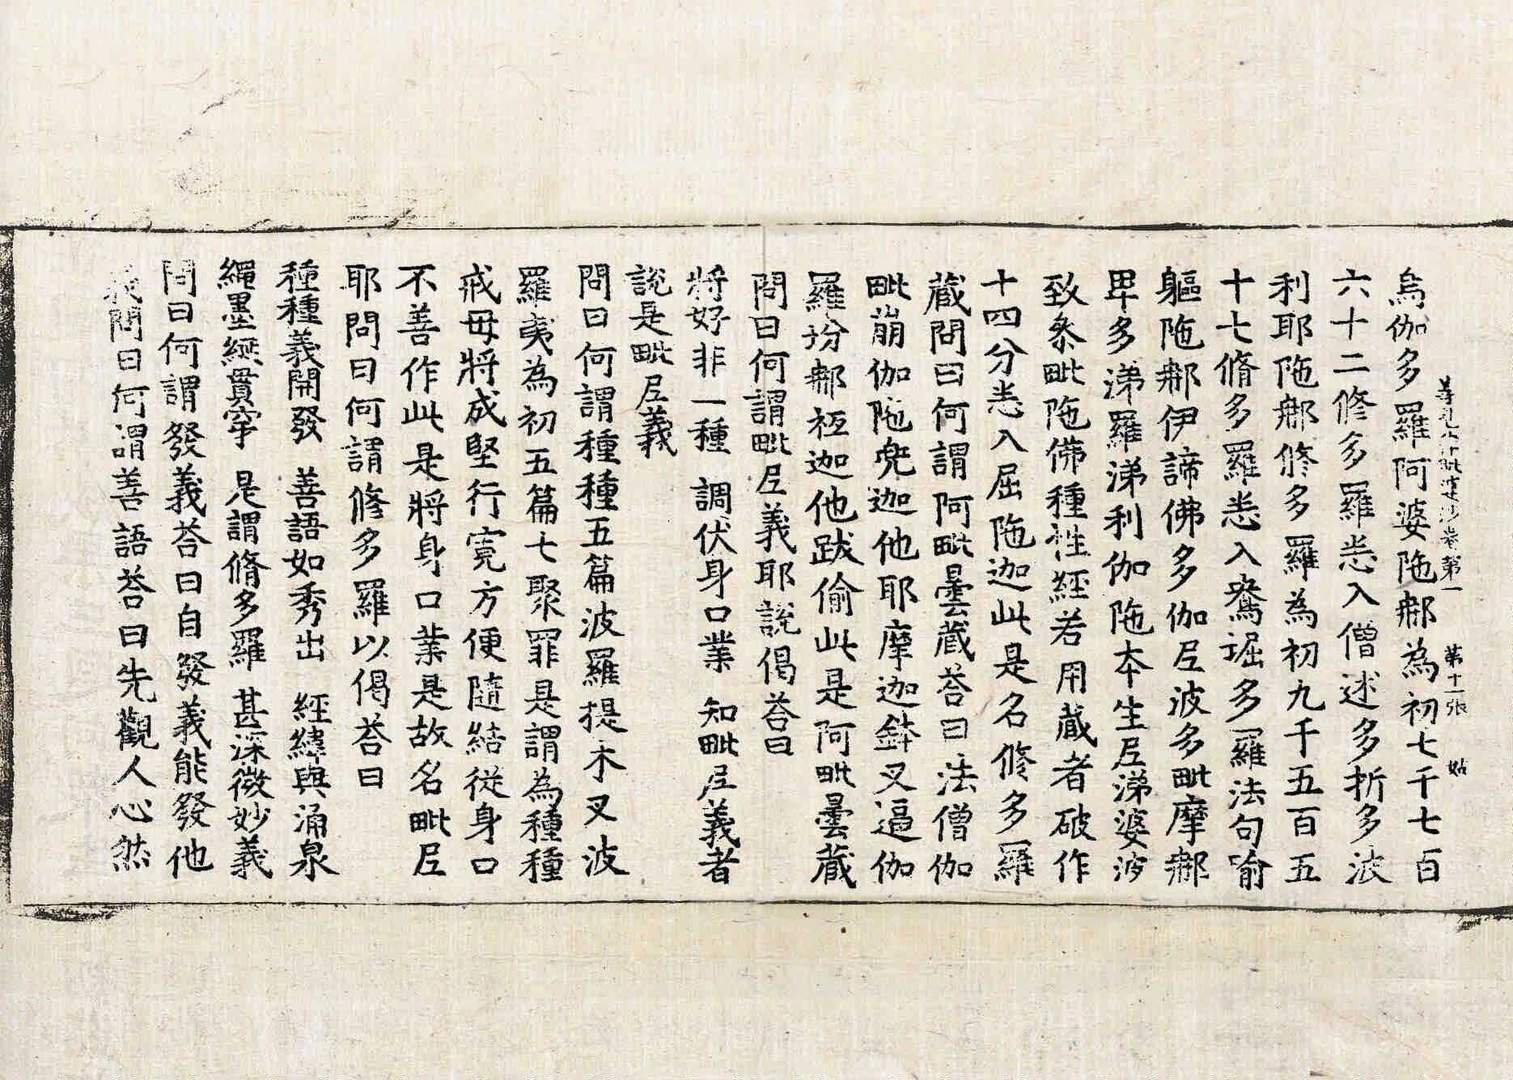 烏伽多羅阿婆陁䣋為初七千七百
善見律毗婆沙卷第一 第十一張 姑
六十二修多羅悉入僧述多折多波
利耶陁䣋修多羅為初九千五百五
十七脩多羅悉入鴦堀多羅法句喻
軀陁䣋伊諦佛多伽𡰱波多毗摩䣋
卑多涕羅涕利伽陁本生𡰱涕婆波
致叅毗陁佛種性經若用藏者破作
十四分悉入屈陁迦此是名修多羅
藏問曰何謂阿毗曇藏荅曰法僧伽
毗崩伽陁兜迦他耶摩迦鉢叉逼伽
羅坋䣋祇迦他跋偷此是阿毗曇藏
問曰何謂毗𡰱義耶說偈荅曰
將好非一種 調伏身口業 知毗𡰱義者
說是毗𡰱義
問曰何謂種種五篇波羅提木叉波
羅夷為初五篇七聚罪是謂為種種
戒母將成堅行寬方便隨結從身口
不善作此是將身口業是故名毗𡰱
耶問曰何謂修多羅以偈荅曰
種種義開發 善語如秀出 經緯與涌泉
繩墨綖貫穿 是謂脩多羅 甚深微妙義
問曰何謂發義荅曰自發義能發他
義問曰何謂善語荅曰先觀人心然